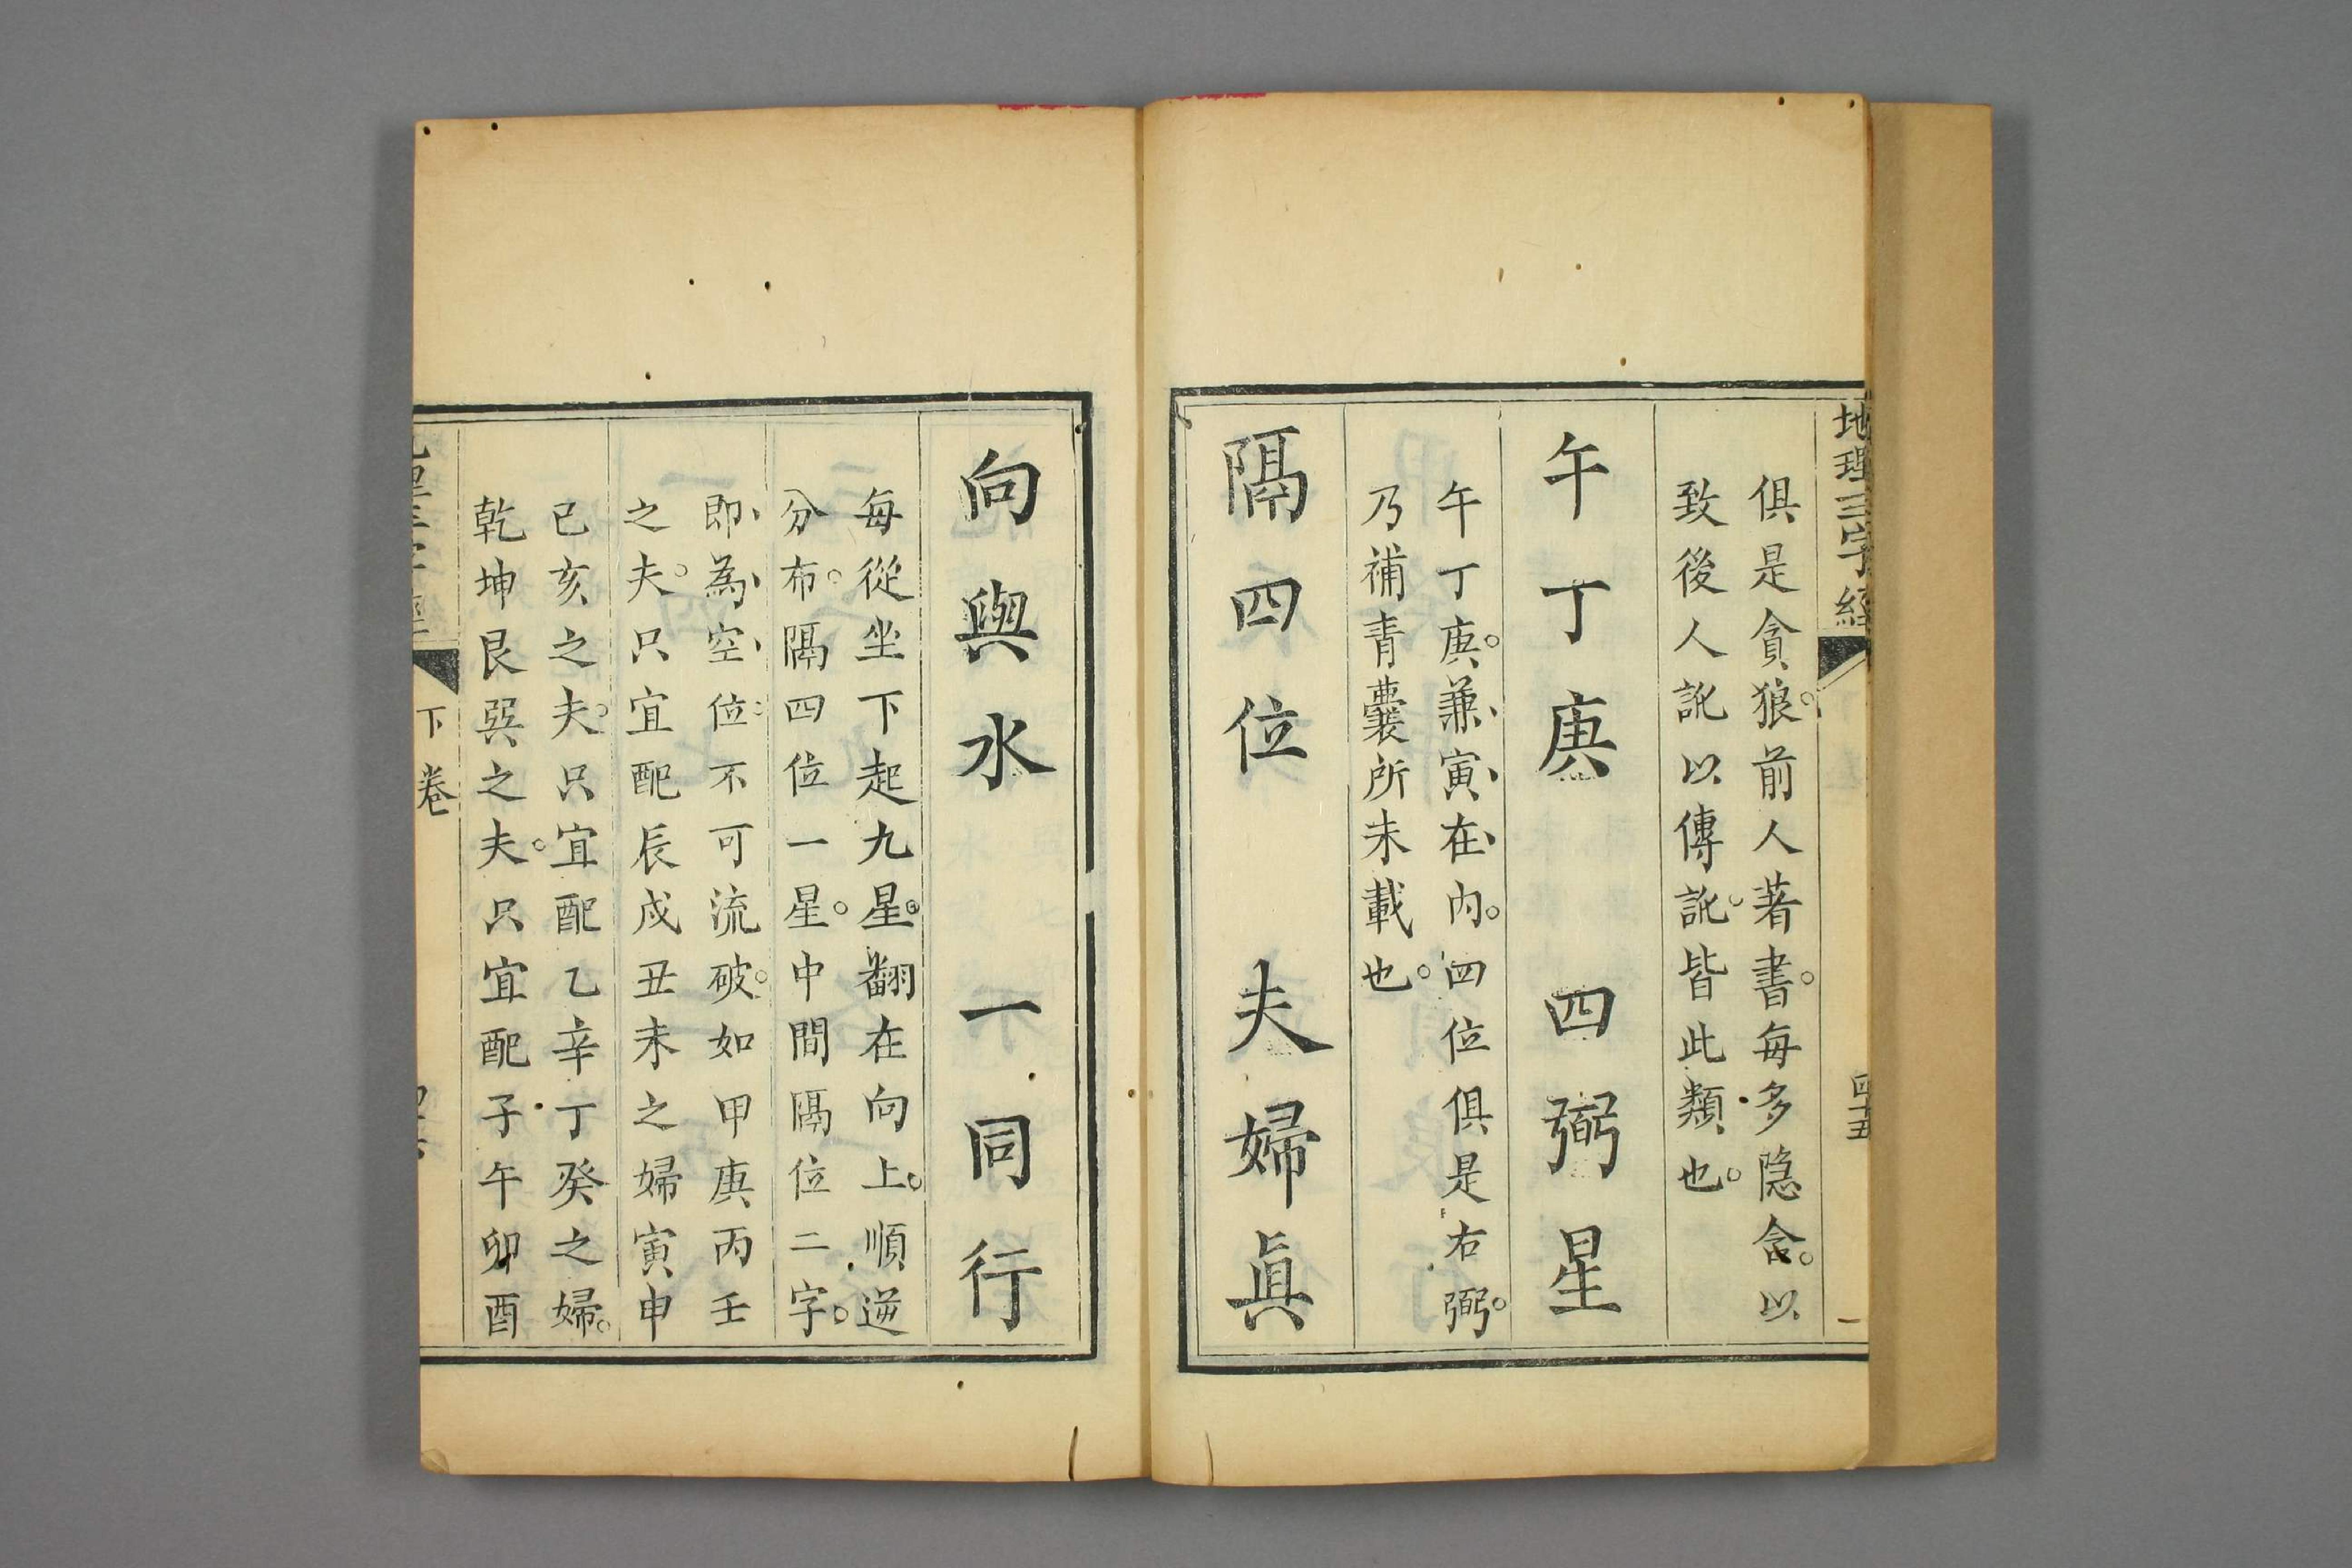 地理三字經
四十五
俱是貪狼。前人著書。每多隐含。以
致後人訛以傳訛。皆此類也。
午丁庚　四弼星
午丁庚。兼寅在內。四位俱是右弼。
乃補青囊所未載也。
隔四位　夫婦眞
向與水　一同行
每從坐下起九星。翻在向上。順逆
分布。隔四位一星。中間隔位二字。
即為空位不可流破。如甲庚丙壬
之夫。只宜配辰戌丑未之婦寅申
巳亥之夫。只宜配乙辛丁癸之婦。
乾坤艮巽之夫。只宜配子午卯酉
下卷